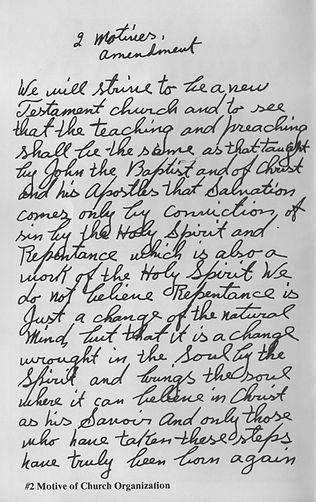 2 Motives,
amendment
We will strive to be a new
Testament church and to see
that the teaching and preaching
shall be the same as that taught
by John the Baptist and of Christ
and his Apostles that Salvation
comes only by conviction, of
sin by the Holy Spirit and
Repentance which is also a
work of the Holy Spirit We
do not believe Repentance is
Just a change of the natural
Mind, but that it is a change
wrought in the Soul by the
Spirit and brings the soul
where it can believe in Christ
as his Savior And only those
who have taken these steps
have truly been born again
#2 Motive of Church Organization